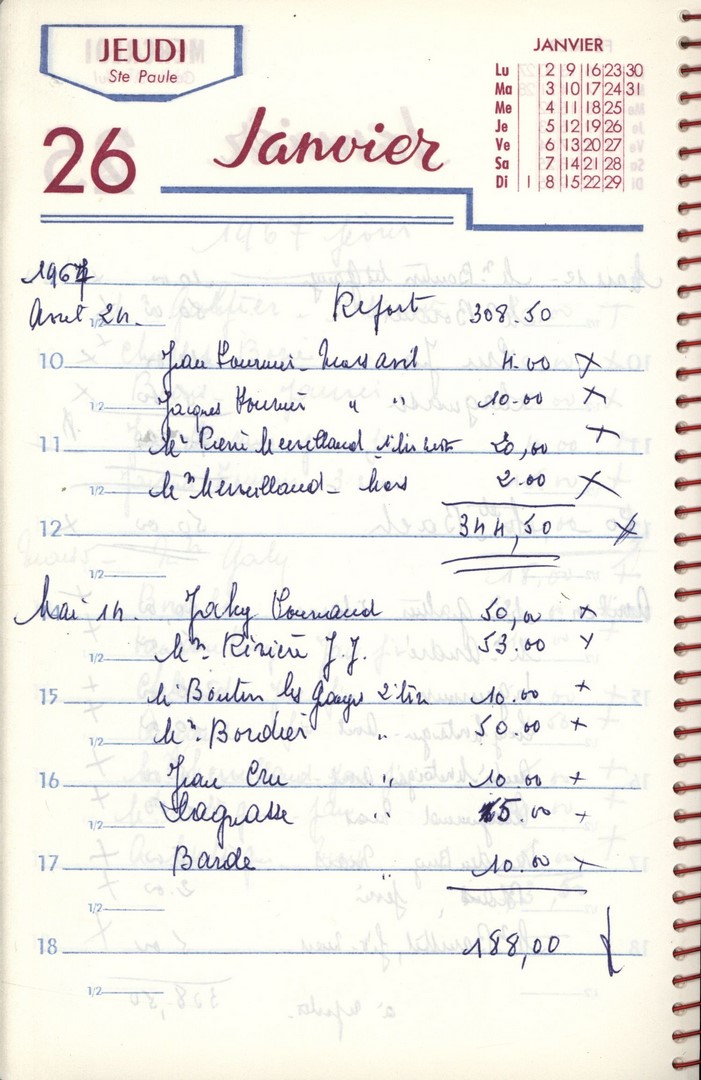 JEUDI
Ste Paule
26 Janvier
JANVIER
Lu 2 9 16 23 30
Ma 3 10 17 24 31
Me 4 11 18 25
Je 5 12 19 26
Ve 6 13 20 27
Sa 7 14 21 28
Di 1 8 15 22 29
1967
Avril 2h. Report 308.50
1/2
10 Jean - Mars avril 4.00 x
1/2 Jacques " " 10.00 x
11 Mr Pierre 20,00 x
1/2 Mr - Mars 2.00 x
12 344,50 x
1/2
Mai 1h. Jaky 50,00 x
1/2 Mr. Rivière J.J. 53.00 x
15 Mr Boutin les 10.00 x
1/2 Mr. Bordier " 50.00 x
16 Jean Cru " 10.00 x
1/2 Lagrasse " 5.00 x
17 Barde " 10.00 x
1/2
18 188,00
1/2